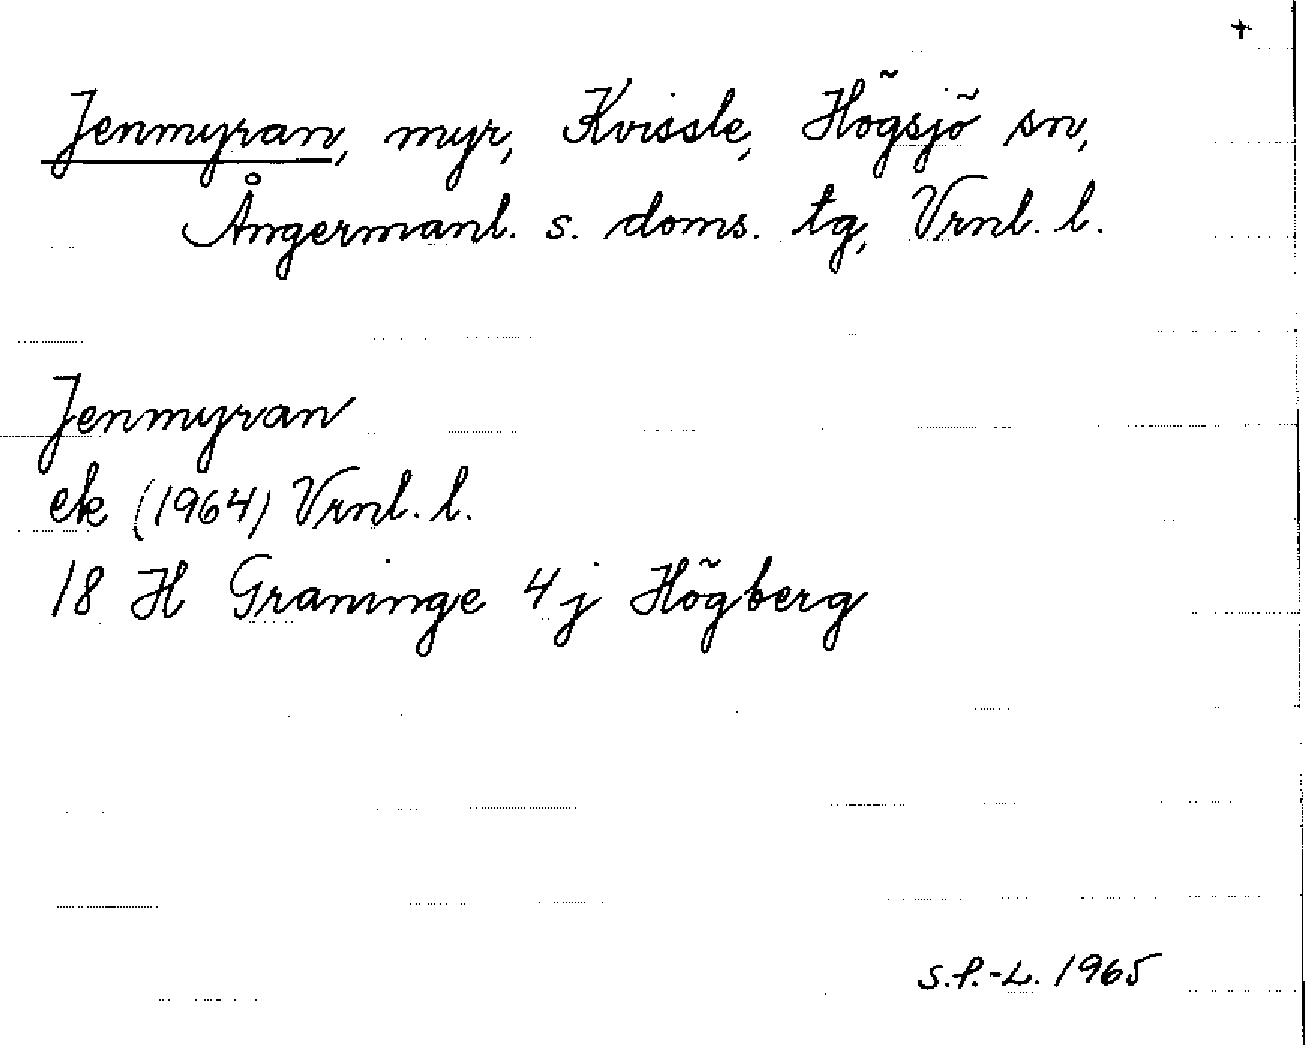 +
Jenmyran, myr, Kvissle, Högsjö sn,
Ångermanl. s. doms. tg, Vrnl. l.
Jenmyran
ek (1964) Vrnl. l.
18 H Graninge 4j Högberg
S.P.-L. 1965